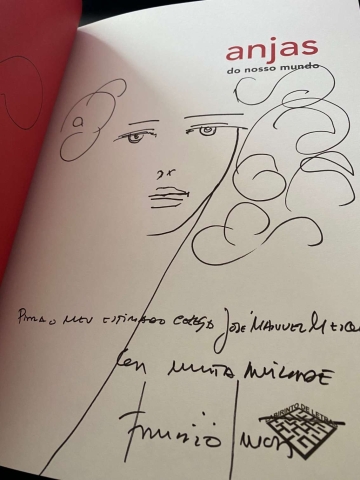 anjas
do nosso mundo
Para o meu estimado colega José Manuel
com muita amizade
LABIRINTO DE LETRAS